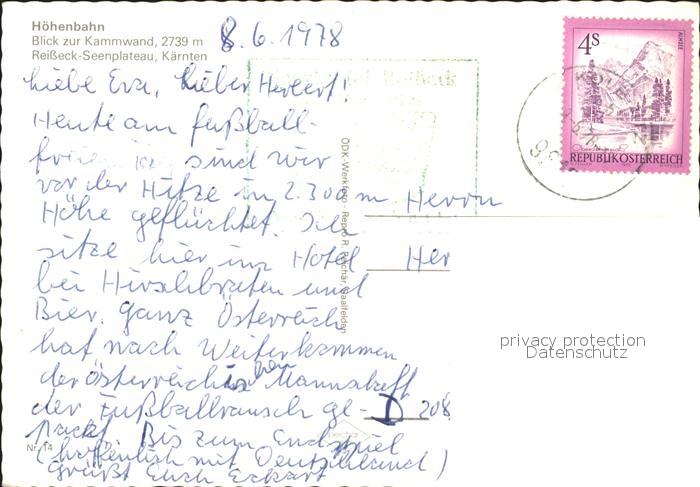 Höhenbahn
Blick zur Kammwand, 2739 m
Reißeck-Seenplateau, Kärnten
8.6.1978
Liebe Eva, lieber Herbert!
Heute am fußball-
freien Tag sind wir
vor der Hitze in 2.300 m
Höhe geflüchtet. Ich
sitze hier im Hotel
bei Hirschbraten und
Bier. Ganz Österreich
hat nach Weiterkommen
der österreichischen Mannschaft
der Fußballrausch ge-
packt. Bis zum Endspiel
(hoffentlich mit Deutschland)
grüßt Euch Eckart
Nr. 14
ÖDK-Werkfoto Repro R. Saalfelden
4S
ALMSEE
REPUBLIK ÖSTERREICH
Herrn
Her
D 208
privacy protection
Datenschutz